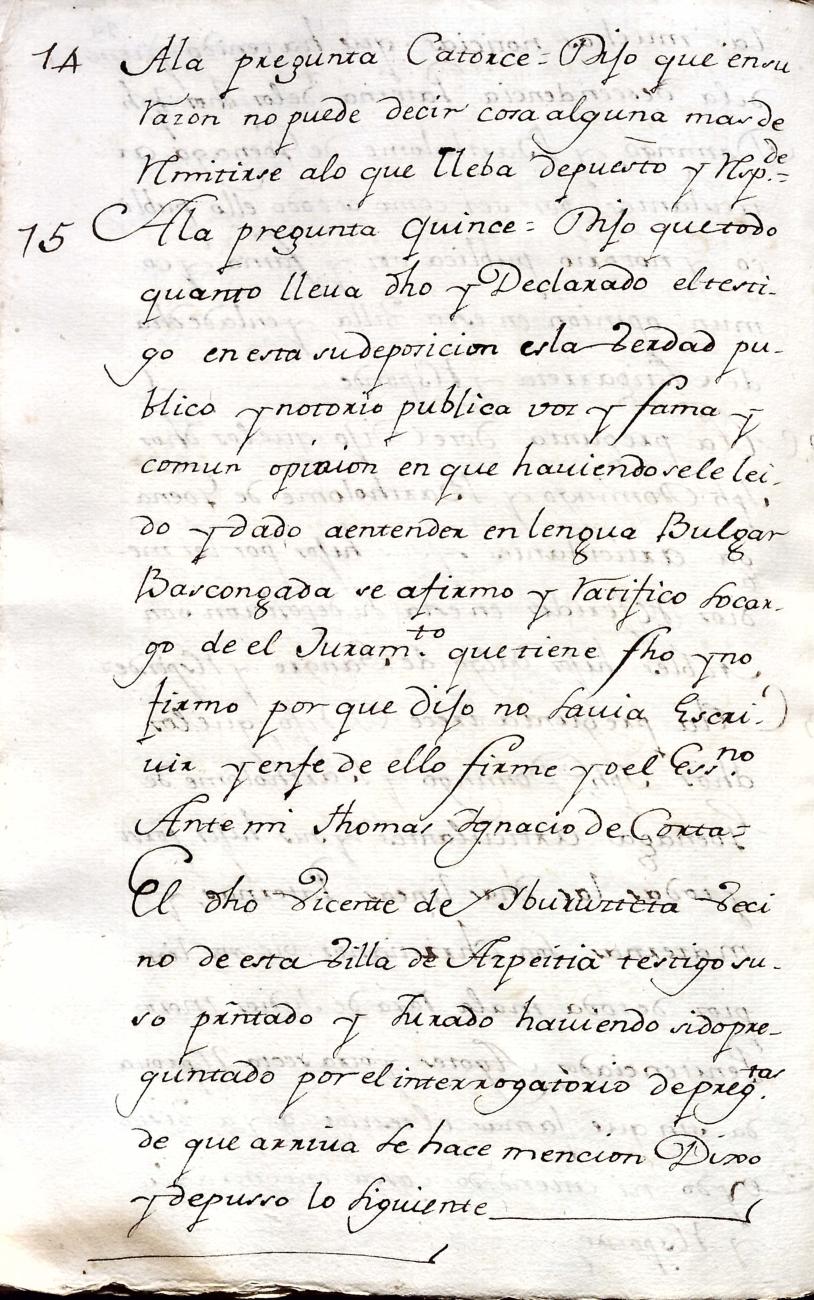 14 Ala pregunta Catorce = Dijo que en su
razon no puede decir cosa alguna mas de
Rmitirse alo que lleba depuesto y Rsp.de =
15 Ala pregunta quince = Dijo que todo
quanto lleva dho y Declarado el testi-
go en esta su deposicion es la Verdad pu-
blico y notorio publica voz y fama y
comun opinion en que haviendosele lei-
do y dado a entender en lengua Bulgar
Bascongada se afirmo y ratifico socar-
go de el Juram.to que tiene fho y no
firmo por que dijo no savia Escri-
vir y en fe de ello firme yo el Ess.no
Ante mi Thomas Ygnacio de Corta =
El dho Vicente de Yburuzteta Veci
no de esta Villa de Azpeitia testigo su-
so prntado y Jurado haviendo sido pre-
guntado por el interrogatorio de preg.tas
de que arriva se hace mencion Dixo
y depusso lo siguiente